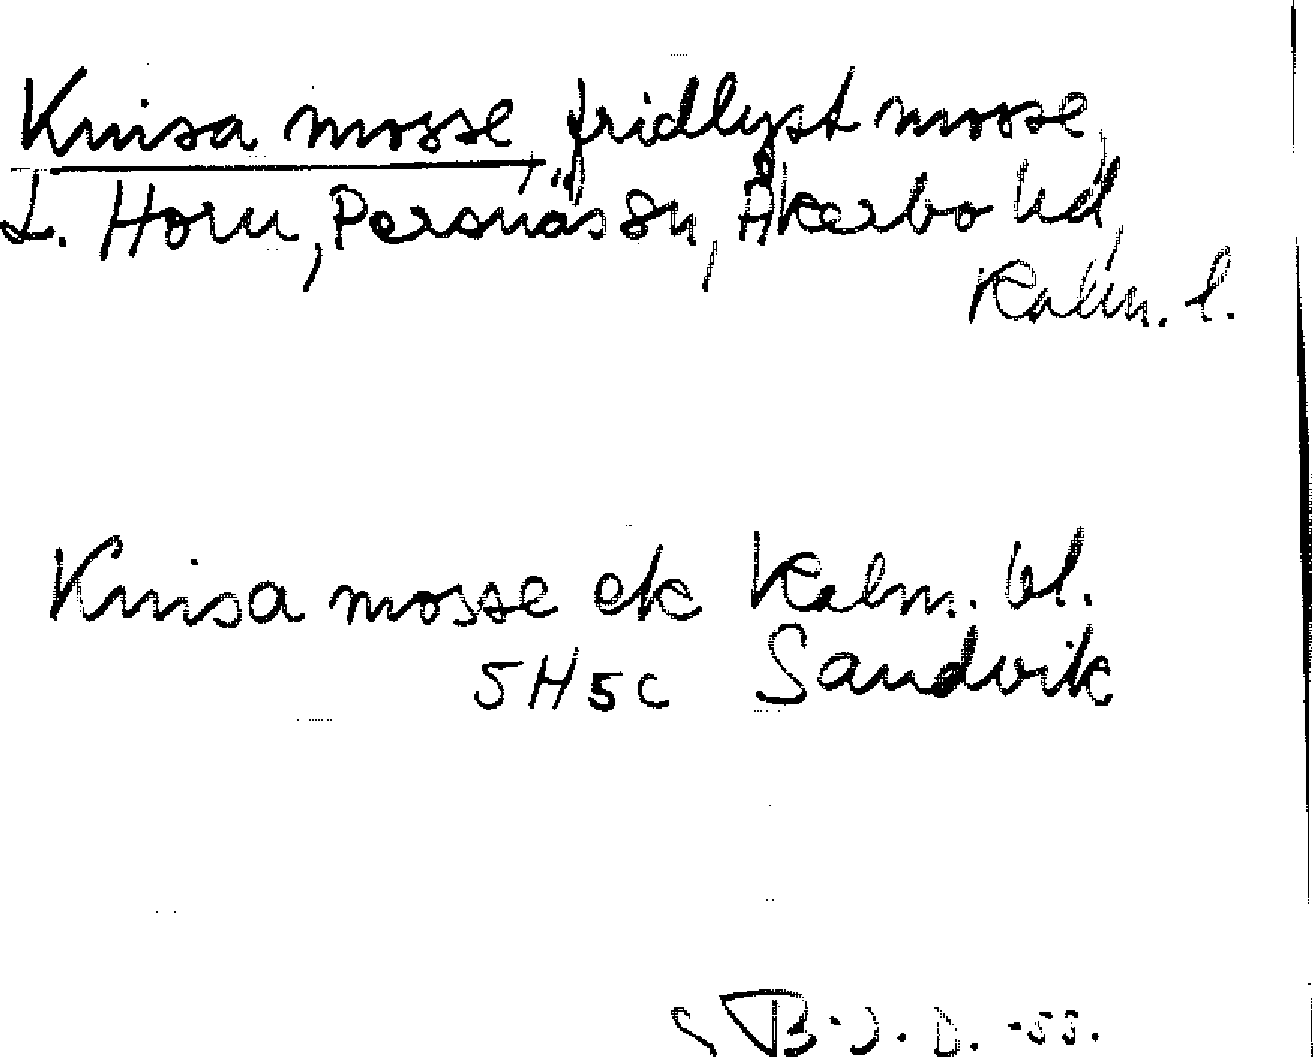 Knisa mosse, fridlyst mosse,
L. Horn, Persnässn, Åkerbo hd,
Kalm. l.
Knisa mosse ek Kalm. bl.
5H5c Sandvik